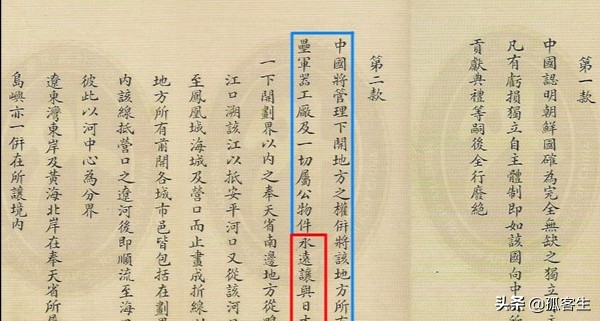 第一款
中國認明朝鮮國確為完全無缺之獨立自主
凡有虧損獨立自主體制即如該國向中國所
貢獻典禮等嗣後全行廢絕
第二款
中國將管理下開地方之權併將該地方所有
壘軍器工廠及一切屬公物件永遠讓與日本
一下開劃界以內之奉天省南邊地方從鴨
江口溯該江以抵安平河口又從該河口
至鳳凰城海城及營口而止畫成折線以
地方所有前開各城市邑皆包括在劃界
內該線抵營口之遼河後即順流至海口
彼此以河中心為分界
遼東灣東岸及黃海北岸在奉天省所屬
島嶼亦一併在所讓境內
头条 @孤客生